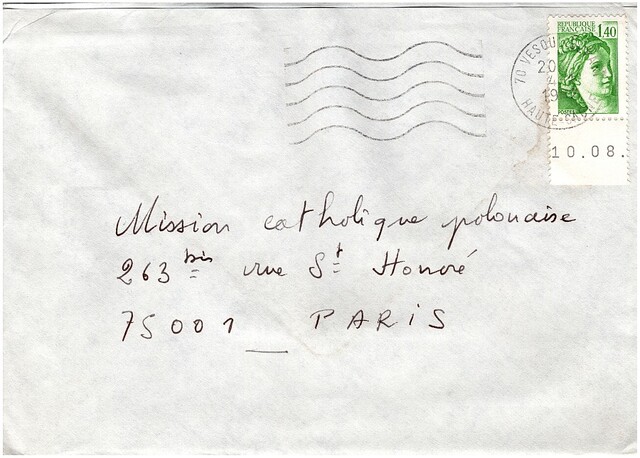 REPUBLIQUE
FRANÇAISE 1,40
70 VESOU
20
19
HAUTE
10.08.
Mission catholique polonaise
263 bis rue St Honoré
75001 PARIS